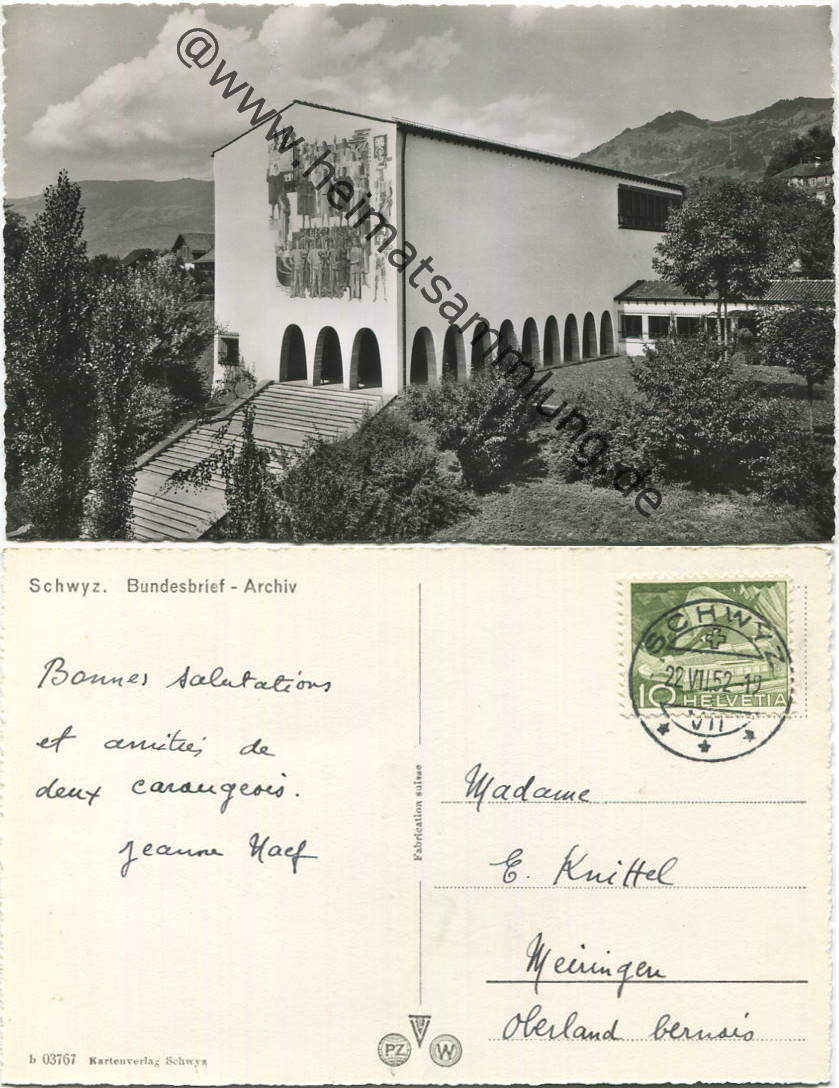 @www.heimatsammlung.de
Schwyz. Bundesbrief - Archiv
Bonnes salutations
et amitiés de
deux carougeois.
Jeanne Naef
SCHWYZ
22.VII.52.19
10 HELVETIA
Fabrication suisse
Madame
E. Knittel
Meiringen
Oberland bernois
b 03767 Kartenverlag Schwyz
PZ W